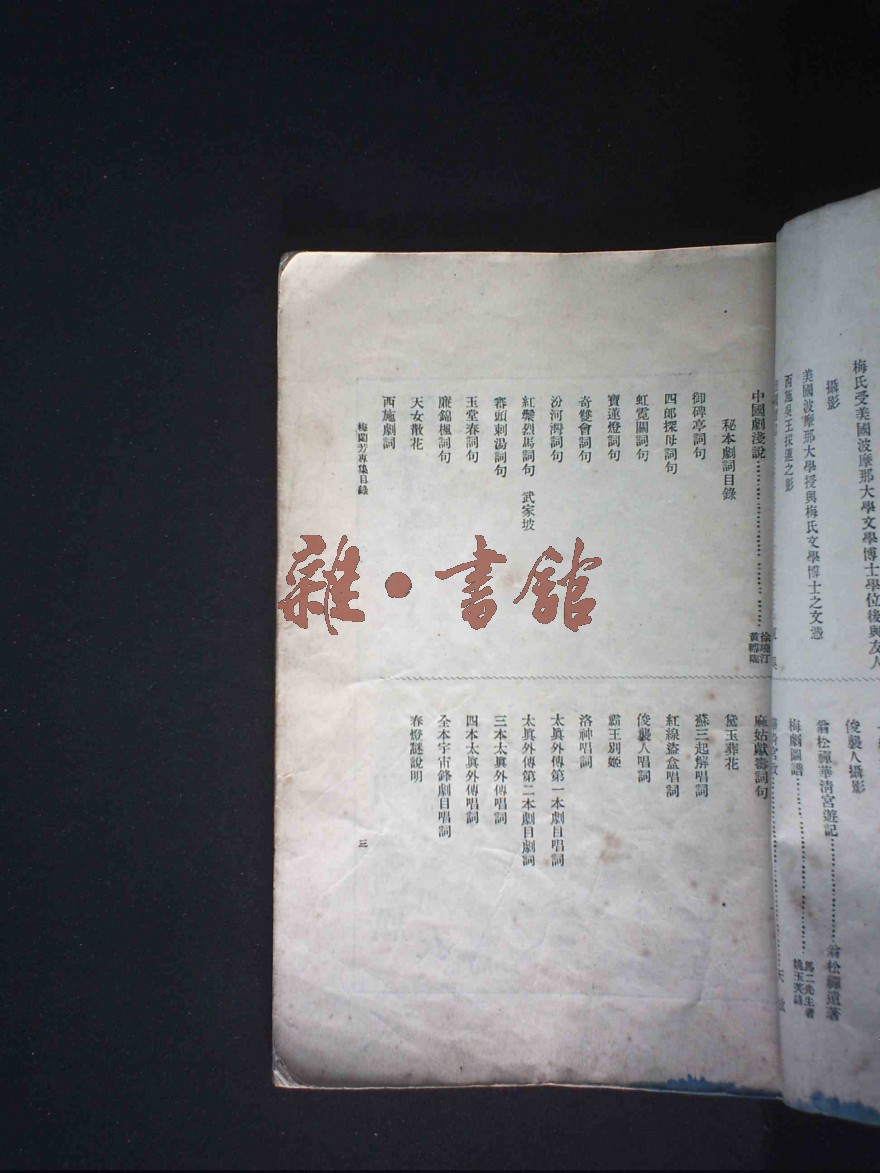 梅氏受美國波摩那大學文學博士學位後與友人
攝影
美國波摩那大學授與梅氏文學博士之文憑
西施吳王採蓮之影
俊襲人攝影
翁松禪華清宮遊記
翁松禪遺著
梅劇圖譜
馬二先生著
中國劇淺說
秘本劇詞目錄
御碑亭詞句
四郎探母詞句
虹霓關詞句
寶蓮燈詞句
奇雙會詞句
汾河灣詞句
紅鬃烈馬詞句 武家坡
審頭刺湯詞句
玉堂春詞句
廉錦楓詞句
天女散花
西施劇詞
麻姑獻壽詞句
黛玉葬花
蘇三起解唱詞
紅線盜盒唱詞
俊襲人唱詞
霸王別姬
洛神唱詞
太眞外傳第一本劇目唱詞
太眞外傳第二本劇目劇詞
三本太眞外傳唱詞
四本太眞外傳唱詞
全本宇宙鋒劇目唱詞
春燈謎說明
梅蘭芳專集目錄
三
雜·書館